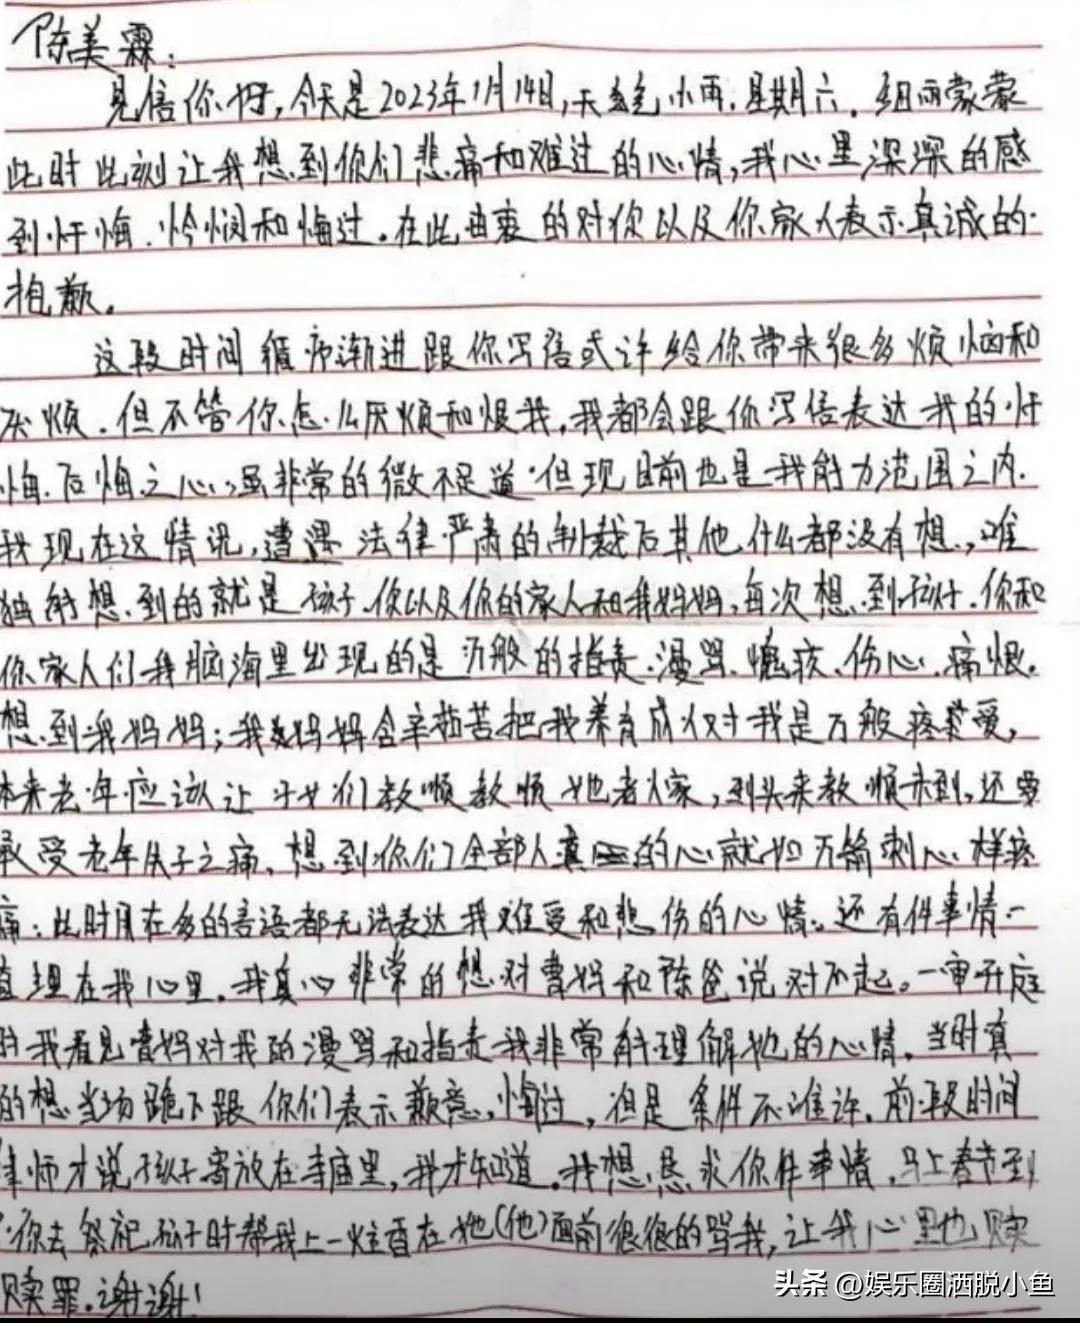 陈美霖：
见信你好，今天是2023年1月14日，天色小雨，星期六，细雨蒙蒙
此时此刻让我想到你们悲痛和难过的心情，我心里深深的感
到忏悔、怜悯和悔过。在此由衷的对你以及你家人表示真诚的
抱歉。
这段时间循序渐进跟你写信或许给你带来很多烦恼和
厌烦，但不管你怎么厌烦和恨我，我都会跟你写信表达我的忏
悔、后悔之心，虽非常的微不足道，但现目前也是我能力范围之内。
我现在这情况，遭遇法律严肃的制裁后其他什么都没有想，唯
独能想到的就是孩子、你以及你的家人和我妈妈，每次想到孩子、你和
你家人们我脑海里出现的是万般的指责、漫骂、愧疚、伤心、痛恨。
想到我妈妈；我妈妈含辛茹苦把我养育成人对我是万般疼爱，
本来老年应该让子女们教顺教顺她老人家，到头来教顺未到，还要
承受老年失子之痛，想到你们全部人真的心就如万箭刺心样疼
痛；此时用在多的言语都无法表达我难受和悲伤的心情。还有件事情一
直埋在我心里，我真心非常的想对曹妈和陈爸说对不起。一审开庭
时我看见曹妈对我的漫骂和指责我非常能理解她的心情，当时真
的想当场跪下跟你们表示歉意，悔过，但是条件不准许，前段时间
律师才说孩子寄放在寺庙里，我才知道。我想恳求你件事情，马上春节到
你去祭祀孩子时帮我上一炷香在她(他)面前狠狠的骂我，让我心里也赎
赎罪。谢谢！
头条 @娱乐圈洒脱小鱼